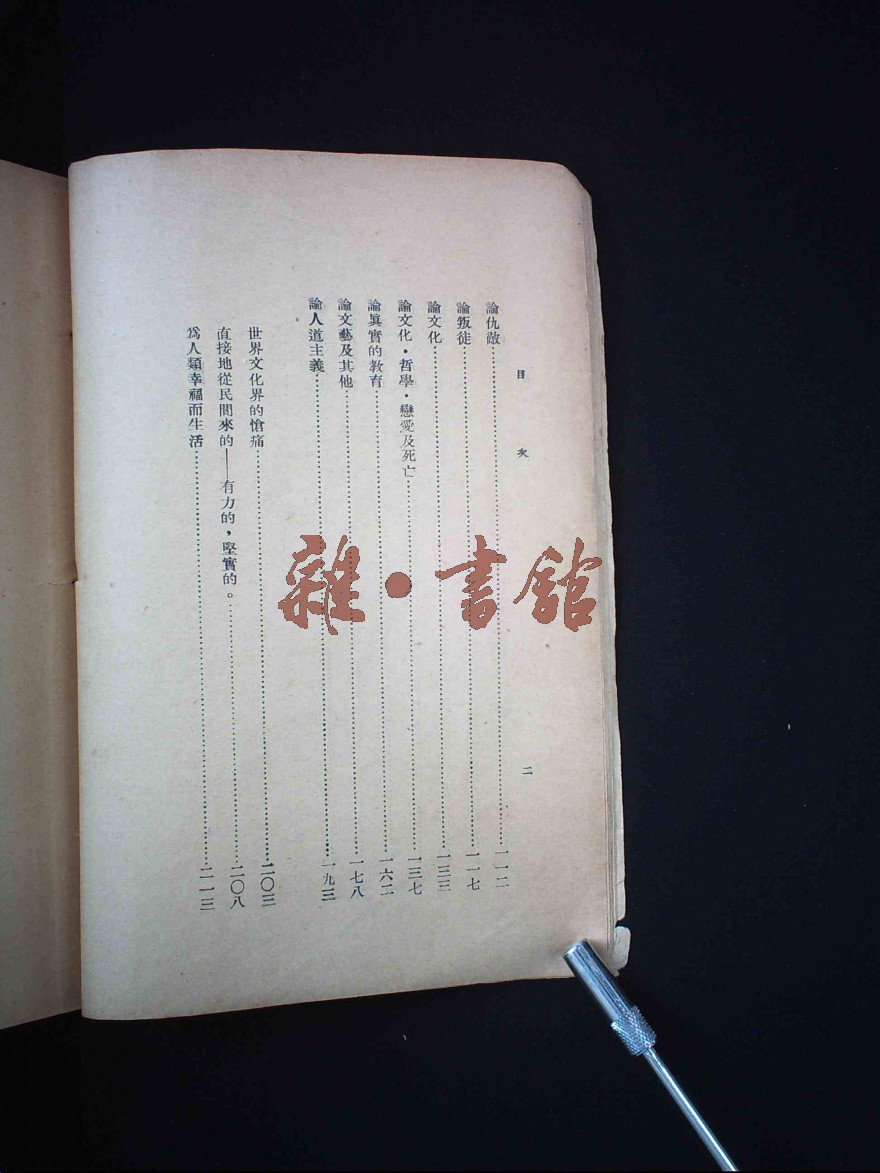 目次
二
論仇敵……一一二
論叛徒……一一七
論文化……一三三
論文化・哲學・戀愛及死亡……一三七
論眞實的教育……一六二
論文藝及其他……一七八
論人道主義……一九三
世界文化界的愴痛……二〇三
直接地從民間來的——有力的，堅實的。……二〇八
爲人類幸福而生活……二一三
雜・書館